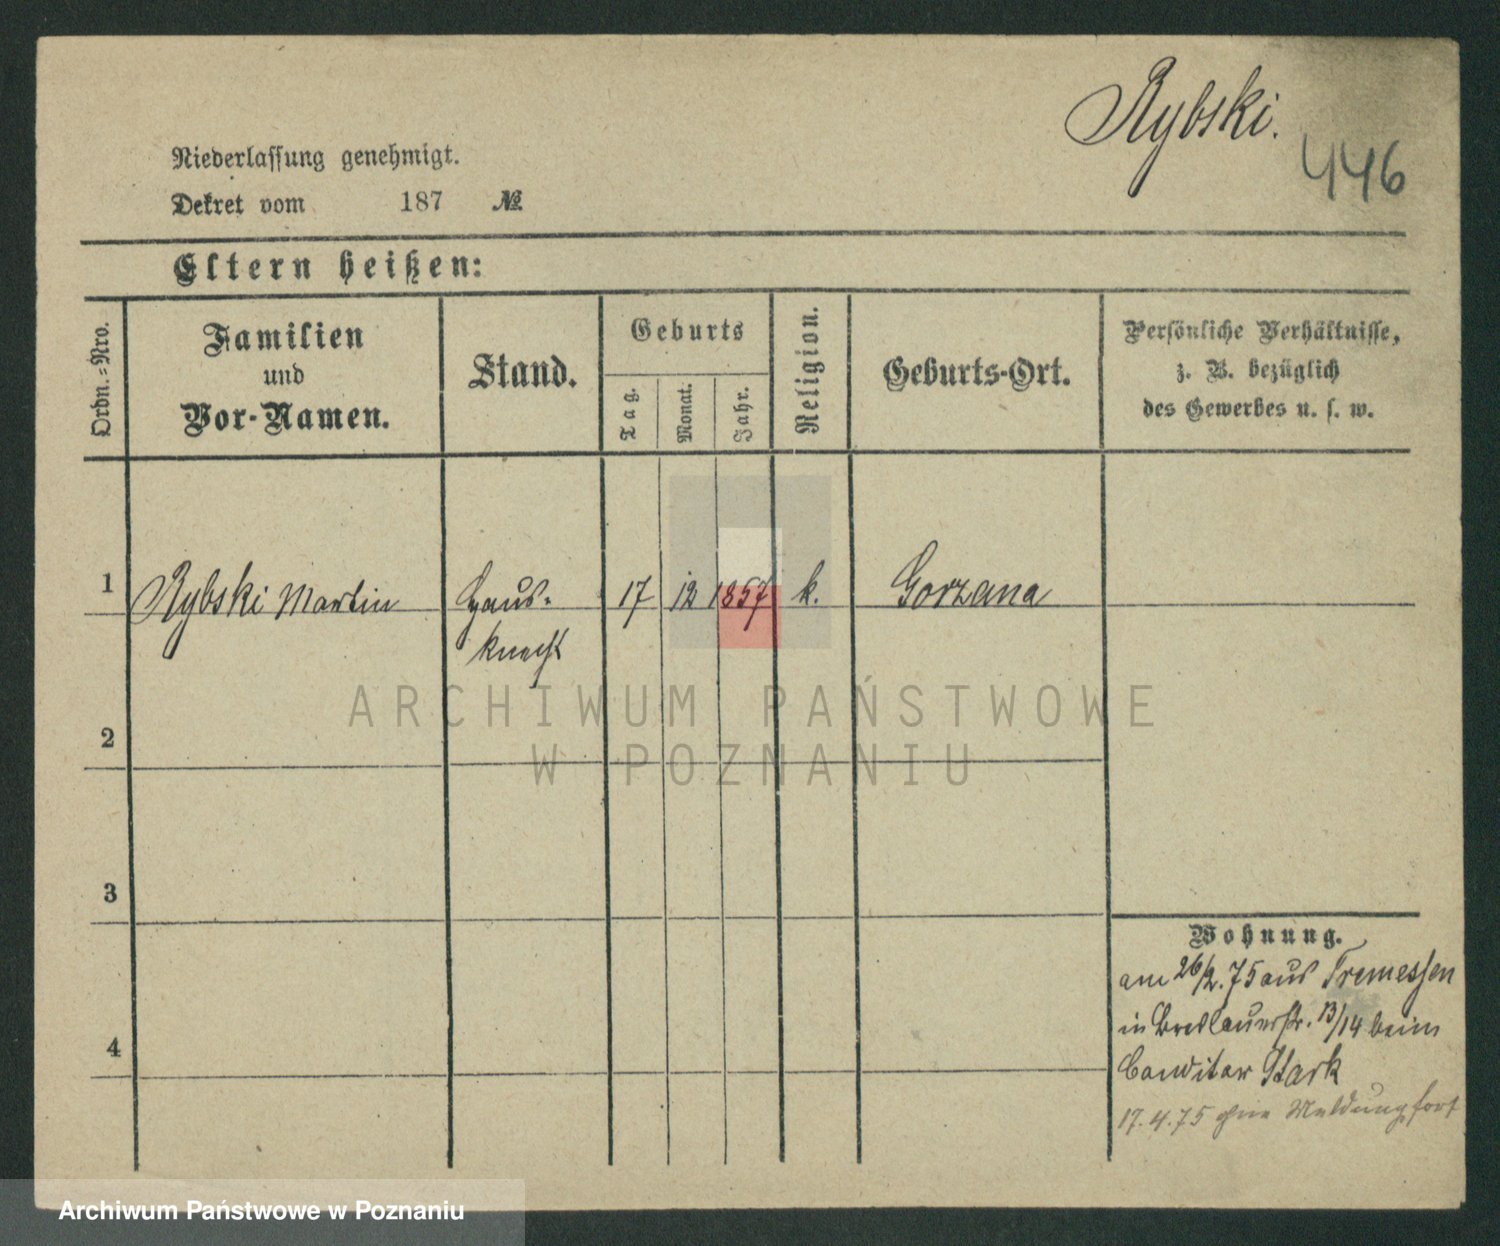 Rybski.
446
Niederlassung genehmigt.
Dekret vom 187 №
Eltern heißen:
Ordn.-Nro.
Familien
und
Vor-Namen.
Stand.
Geburts
Tag.
Monat.
Jahr.
Religion.
Geburts-Ort.
Persönliche Verhältnisse,
z. B. bezüglich
des Gewerbes u. s. w.
1 Rybski Martin Haus- 17 12 1857 k. Gorzana
knecht
ARCHIWUM PAŃSTWOWE
W POZNANIU
2
3
4
Wohnung.
am 26/2. 75 aus Tremessen
in Breslauerstr. 13/14 beim
Conditor Stark
17.4.75 ohne Meldung fort
Archiwum Państwowe w Poznaniu